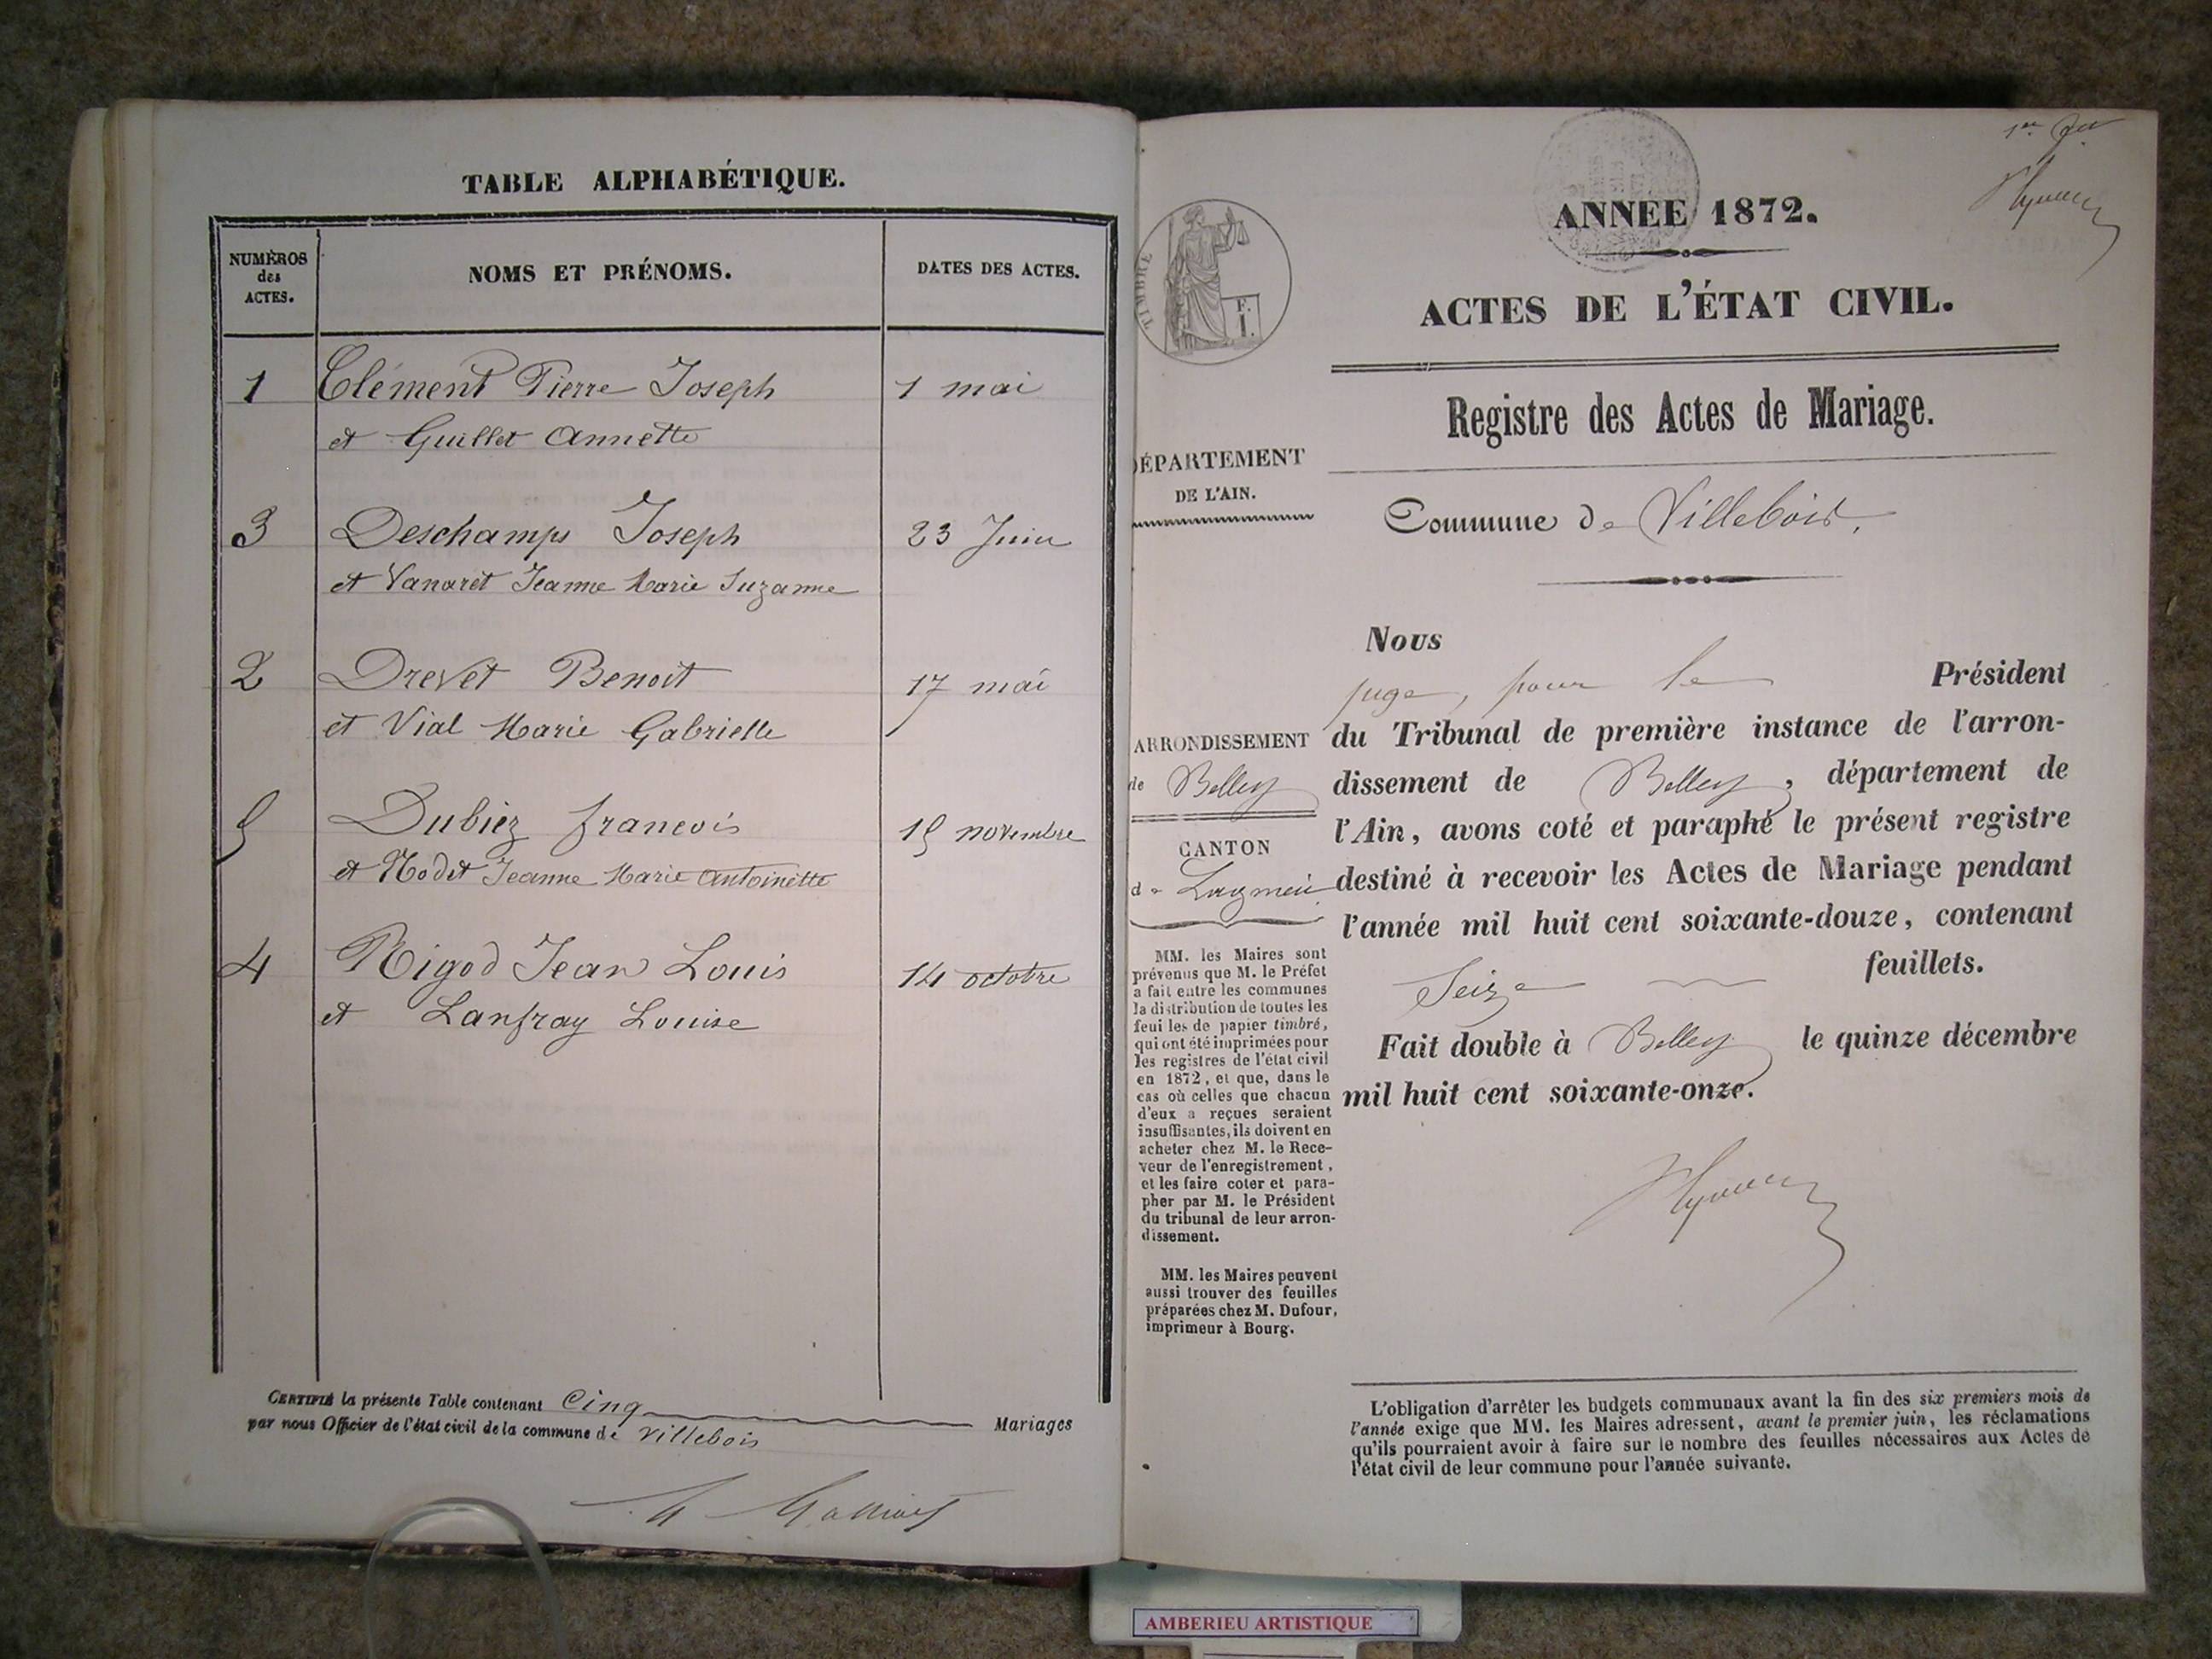 TABLE ALPHABÉTIQUE.
NUMÉROS
des
ACTES.
NOMS ET PRÉNOMS.
DATES DES ACTES.
1 Clément Pierre Joseph 1 mai
et Guillet Annette
3 Deschamps Joseph 23 Juin
et Vanaret Jeanne Marie Suzanne
2 Drevet Benoit 17 mai
et Vial Marie Gabrielle
5 Dubiez francois 15 novembre
et Nodet Jeanne Marie Antoinette
4 Rigod Jean Louis 14 octobre
et Lanfray Louise
CERTIFIÉ la présente Table contenant Cinq Mariages
par nous Officier de l'état civil de la commune de Villebois
1er
ANNEE 1872.
ACTES DE L'ÉTAT CIVIL.
Registre des Actes de Mariage.
TIMBRE
F.
I.
DÉPARTEMENT
DE L'AIN.
Commune de Villebois.
ARRONDISSEMENT
de Belley
CANTON
de Lagnieu
MM. les Maires sont
prévenus que M. le Préfet
a fait entre les communes
la distribution de toutes les
feuilles de papier timbré,
qui ont été imprimées pour
les registres de l'état civil
en 1872, et que, dans le
cas où celles que chacun
d'eux a reçues seraient
insuffisantes, ils doivent en
acheter chez M. le Rece-
veur de l'enregistrement,
et les faire coter et para-
pher par M. le Président
du tribunal de leur arron-
dissement.
MM. les Maires peuvent
aussi trouver des feuilles
préparées chez M. Dufour,
imprimeur à Bourg.
Nous
juge, pour le Président
du Tribunal de première instance de l'arron-
dissement de Belley, département de
l'Ain, avons coté et paraphé le présent registre
destiné à recevoir les Actes de Mariage pendant
l'année mil huit cent soixante-douze, contenant
Seize feuillets.
Fait double à Belley le quinze décembre
mil huit cent soixante-onze.
L'obligation d'arrêter les budgets communaux avant la fin des six premiers mois de
l'année exige que MM. les Maires adressent, avant le premier juin, les réclamations
qu'ils pourraient avoir à faire sur le nombre des feuilles nécessaires aux Actes de
l'état civil de leur commune pour l'année suivante.
AMBERIEU ARTISTIQUE